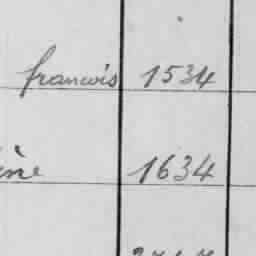 francois 1534
ène 1634